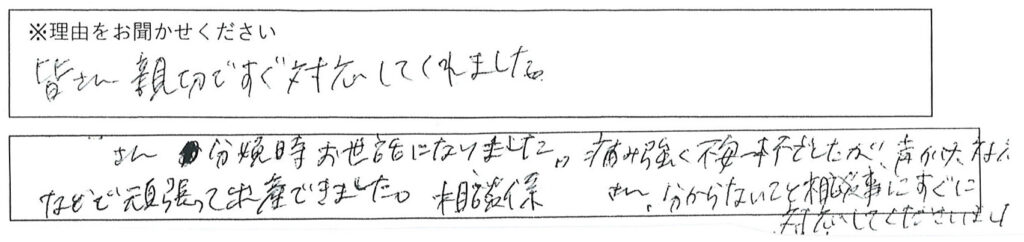 ※理由をお聞かせください
皆さん親切ですぐ対応してくれました。
さん 分娩時お世話になりました。痛み強く不安一杯でしたが、声かけ、
などで頑張って出産できました。相談係 さん、分からないこと相談事にすぐに
対応してくださいまし